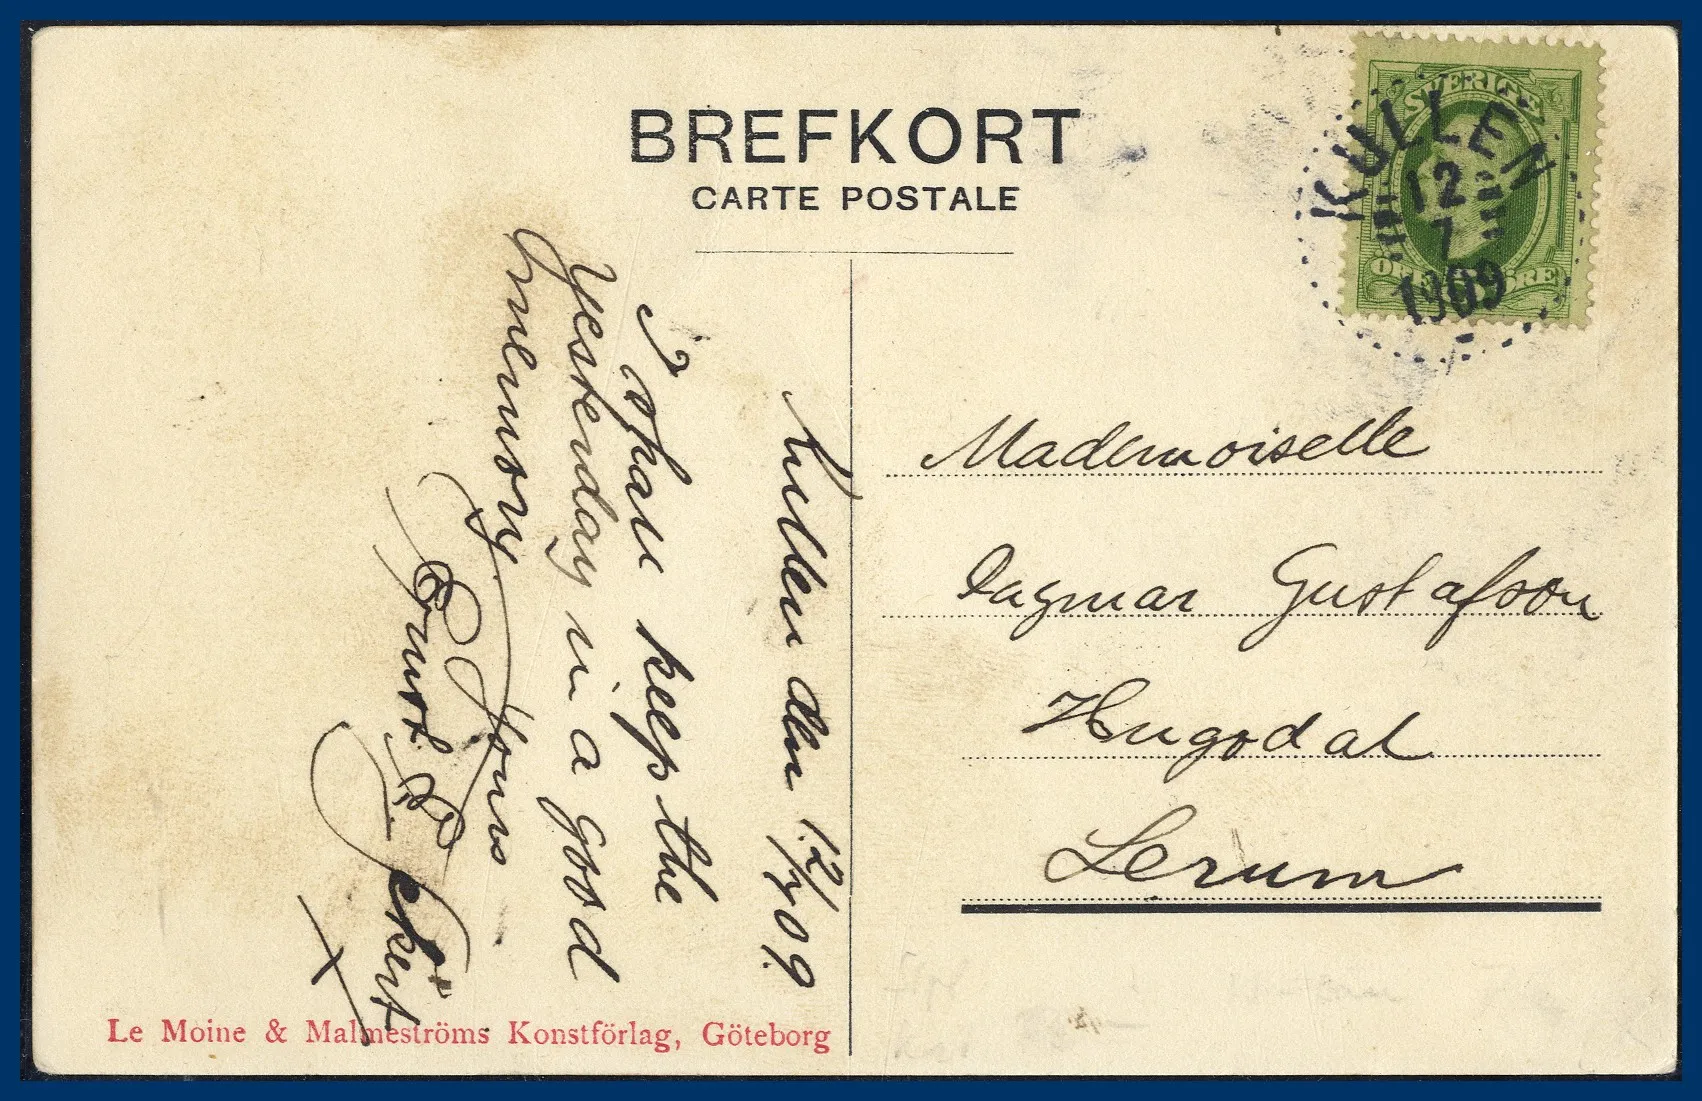 BREFKORT
CARTE POSTALE
SVERIGE
KULLEN
12
7
1909
Kullen den 12/7 09.
I shall keep the
yesterday in a good
memory.
Yours
Mademoiselle
Dagmar Gustafson
Hugodal
Lerum
Le Moine & Malmeströms Konstförlag, Göteborg